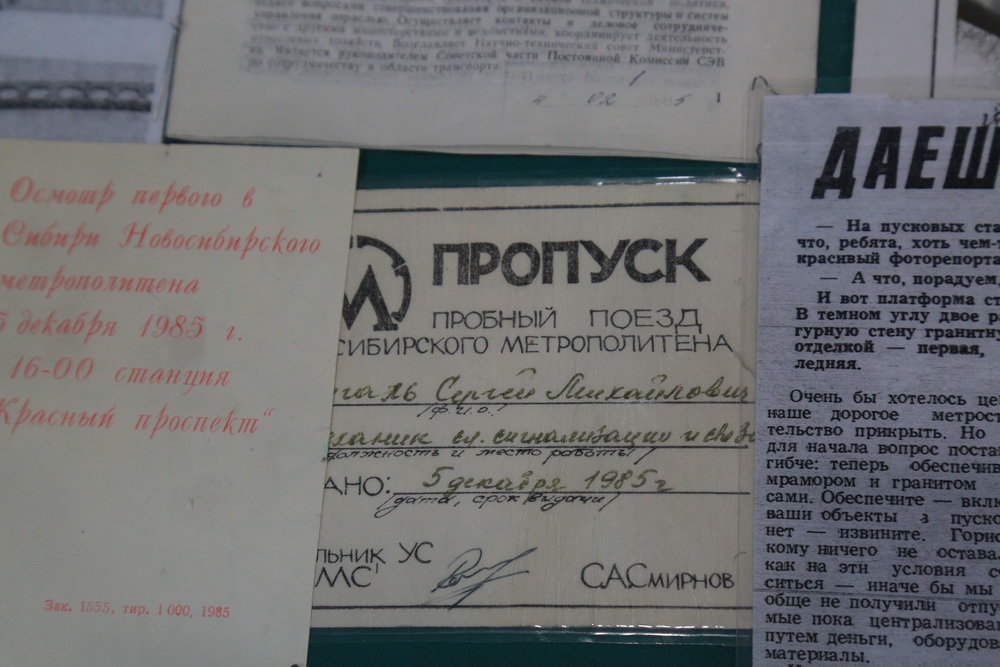 подает вопросами совершенствования организационной структуры и систем
управления отраслью. Осуществляет контакты и деловое сотрудниче-
ство с другими министерствами и ведомствами, координирует деятельность
хозяйств. Возглавляет Научно-технический совет Министерст-
ва. Является руководителем Советской части Постоянной Комиссии СЭВ
по сотрудничеству в области транспорта.
Осмотр первого в
Сибири Новосибирского
метрополитена
5 декабря 1985 г.
16-00 станция
Красный проспект"
Зак. 1555, тир. 1000, 1985
М
ПРОПУСК
ПРОБНЫЙ ПОЕЗД
СИБИРСКОГО МЕТРОПОЛИТЕНА
галь Сергей Михайлович
(ф.и.о.)
еханик сл. сигнализации и связи
должность и место работы)
АНО: 5 декабря 1985 г
(дата, срок выдачи)
льник УС
МС"
С.А.Смирнов
ДАЕШ
— На пусковых ста
что, ребята, хоть чем-
красивый фоторепорта
— А что, порадуем,
И вот платформа ст
В темном углу двое ра
гурную стену гранитну
отделкой — первая,
ледняя.
Очень бы хотелось це
наше дорогое метрост
тельство прикрыть. Но
для начала вопрос поста
гибче: теперь обеспечив
мрамором и гранитом
сами. Обеспечите — вклю
ваши объекты в пуско
нет — извините. Горис
кому ничего не остава
как на эти условия с
ситься — иначе бы мы
обще не получили отпу
мые пока централизова
путем деньги, оборудов
материалы.